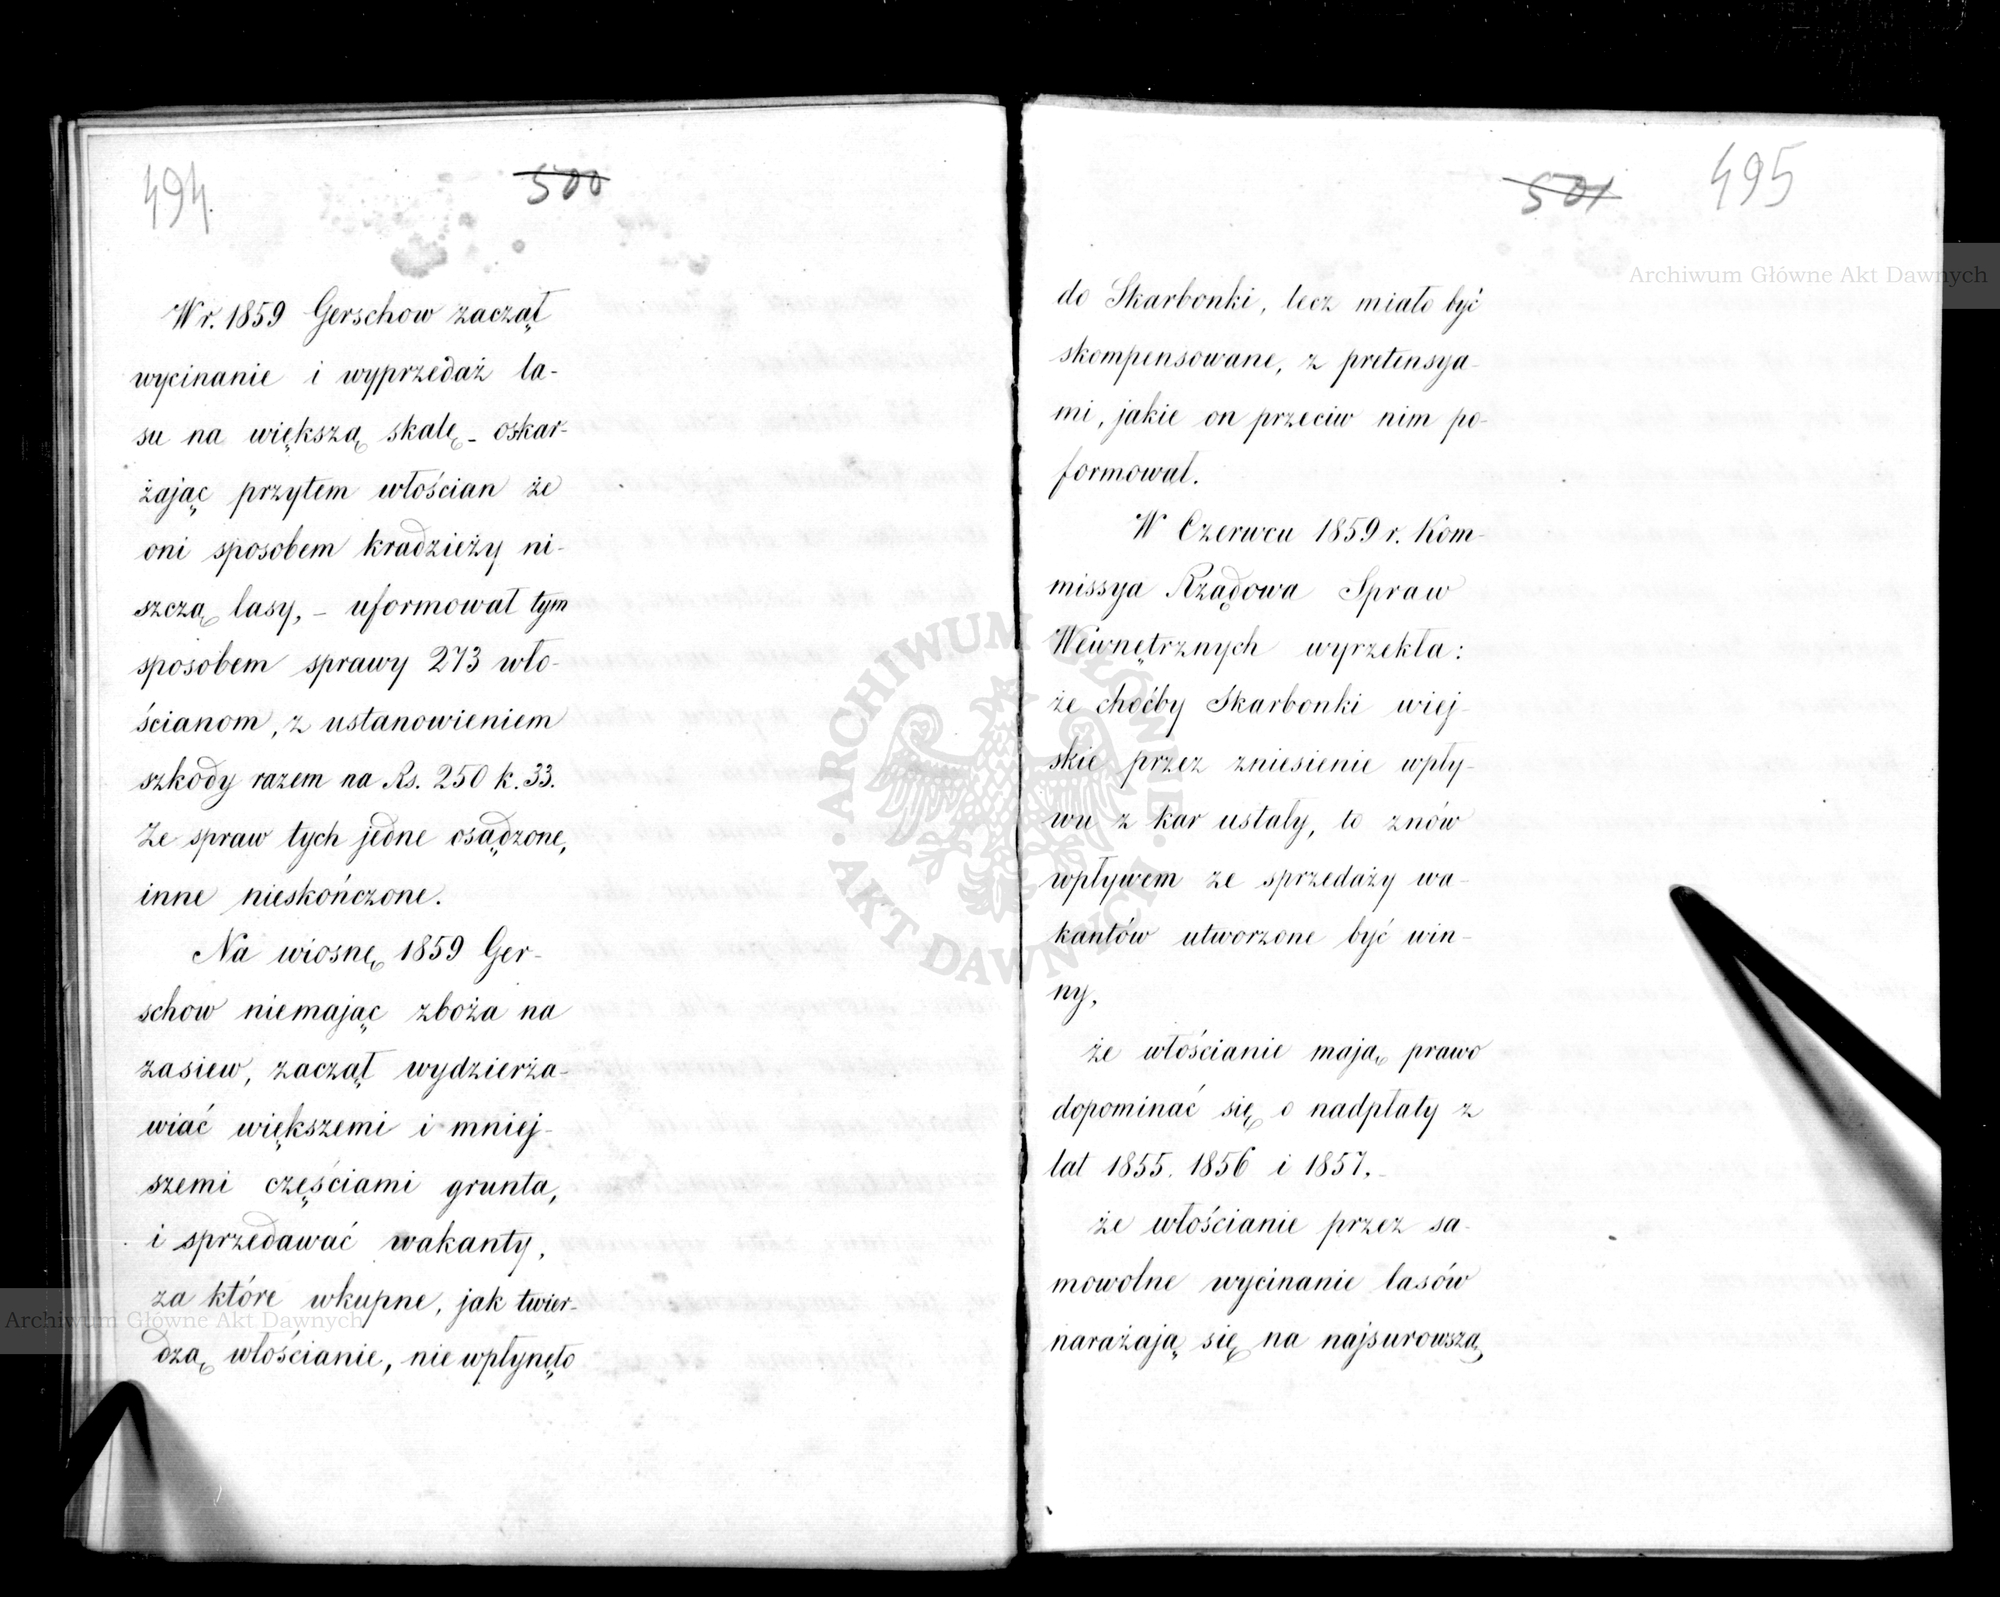 494
500
W r. 1859 Gerschow zaczął
wycinanie i wyprzedaż la-
su na większą skalę - oskar-
żając przytem włościan że
oni sposobem kradzieży ni-
szczą lasy, - uformował tym
sposobem sprawy 273 wło-
ścianom, z ustanowieniem
szkody razem na Rs. 250 k. 33.
Ze spraw tych jedne osądzone,
inne nieskończone.
Na wiosnę 1859 Ger-
schow niemając zboża na
zasiew, zaczął wydzierża-
wiać większemi i mniej-
szemi częściami grunta,
i sprzedawać wakanty,
za które wkupne, jak twier-
dzą włościanie, nie wpłynęło
501
495
do Skarbonki, lecz miało być
skompensowane, z pretensya-
mi, jakie on przeciw nim po-
formował.
W Czerwcu 1859 r. Kom-
missya Rządowa Spraw
Wewnętrznych wyrzekła:
że choćby Skarbonki wiej-
skie przez zniesienie wpły-
wu z kar ustały, to znów
wpływem ze sprzedaży wa-
kantów utworzone być win-
ny,
że włościanie mają prawo
dopominać się o nadpłaty z
lat 1855. 1856 i 1857. -
że włościanie przez sa-
mowolne wycinanie lasów
narażają się na najsurowszą
Archiwum Główne Akt Dawnych
Archiwum Główne Akt Dawnych
ARCHIWUM GŁÓWNE AKT DAWNYCH